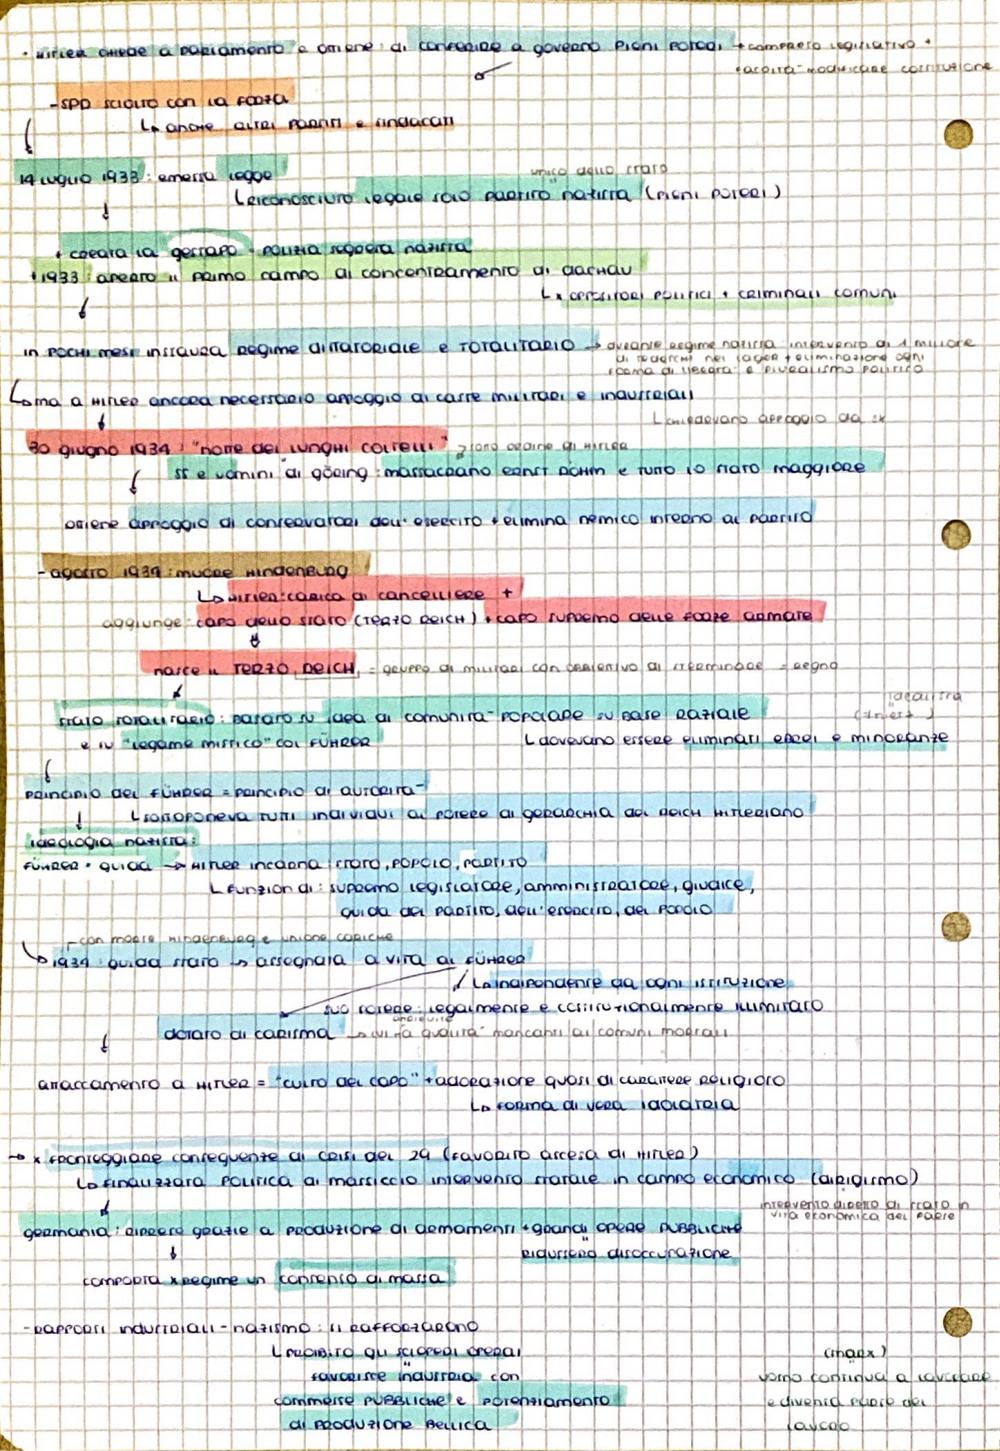 · Hitler chiede a parlamento e ottiene: di conferire a governo pieni poteri + compreso legislativo +
facoltà modificare costituzione
- SPD sciolto con la forza
↳ anche altri partiti e sindacati
14 luglio 1933: emessa legge
unico dello stato
↳ riconosciuto legale solo partito nazista (pieni poteri)
+ creata la gestapo - polizia segreta nazista
+ 1933: aperto il primo campo di concentramento di dachau
↳ x oppositori politici + criminali comuni
in pochi mesi instaura regime dittatoriale e totalitario → durante regime nazista: intervento di 1 milione
di tedeschi nei lager + eliminazione ogni
forma di libertà e pluralismo politico
↳ ma a Hitler ancora necessario appoggio di caste militari e industriali
↳ chiedevano appoggio da
30 giugno 1934: "notte dei lunghi coltelli" → sono ordine di Hitler
SS e uomini di göring: massacrano ernst röhm e tutto lo stato maggiore
ottiene appoggio di conservatori dell'esercito + elimina nemico interno al partito
- agosto 1934: muore Hindenburg
↳ Hitler: carica di cancelliere +
aggiunge: capo dello stato (TERZO REICH) + capo supremo delle forze armate
nasce il TERZO REICH = gruppo di militari con obiettivo di sterminare = regno
stato totalitario: basato su idea di comunità popolare su base raziale
idealista
e su "legame mistico" col FÜHRER
↳ dovevano essere eliminati ebrei e minoranze
principio del FÜHRER = principio di autorità
↳ sottoponeva tutti individui al potere di gerarchia del reich hitleriano
ideologia nazista:
FÜHRER = guida → HITLER incarna: stato, popolo, partito
↳ funzion di: supremo legislatore, amministratore, giudice,
guida del partito, dell'esercito, del popolo
con morte hindenburg e unione cariche
↳ 1934: guida stato → assegnata a vita al FÜHRER
↳ indipendente da ogni istituzione
suo potere: legalmente e costituzionalmente illimitato
dotato di carisma → qualità mancanti ai comuni mortali
attaccamento a Hitler = "culto del capo" + adorazione quasi di carattere religioso
↳ forma di vera idolatria
→ x fronteggiare conseguenze di crisi del 29 (favorito ascesa di Hitler)
↳ finalizzata politica di massiccio intervento statale in campo economico (dirigismo)
intervento diretto di stato in
vita economica del paese
germania: riprese grazie a produzione di armamenti + grandi opere pubbliche
ridussero disoccupazione
comporta x regime un consenso di massa
- rapporti industriali - nazismo: si rafforzarono
↳ proibito gli scioperi operai
favorisce industria con
commesse pubbliche e potenziamento
di produzione bellica
(marx)
uomo continua a lavorare
e diventa parte del
lavoro